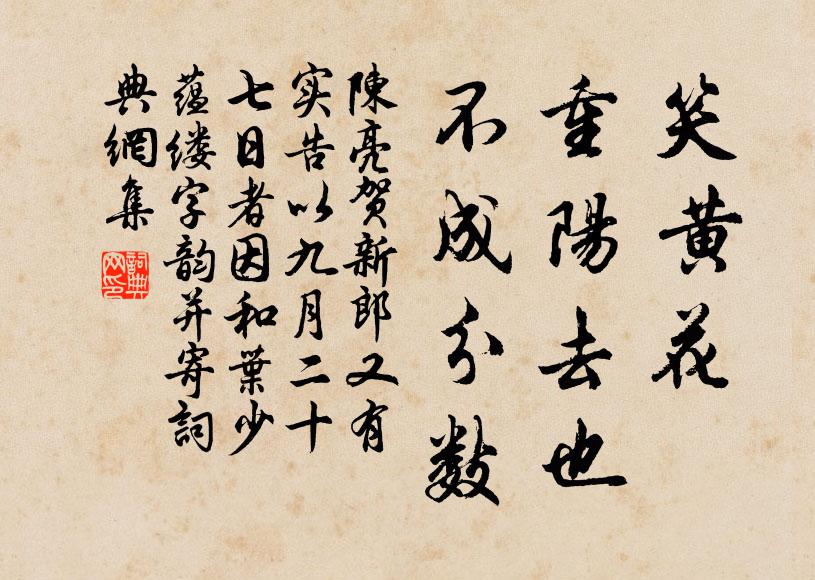 笑黄花
重陽去也
不成分数
陳亮贺新郎又有
实告以九月二十
七日者因和葉少
蕴缕字韵并寄詞
典網集
詞典
网印